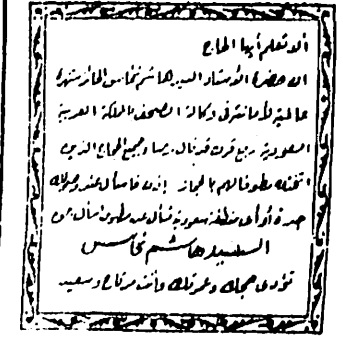 ألا تعلم أيها الحاج
أن حضرة الأستاذ السيد هاشم نحاس الحائز شهرة
عالمية لأمانته في وكالة الصحف بالمملكة العربية
السعودية ربع قرن قد نال رضا وجميع الحجاج الذين
اتخذه مطوفا لهم بالحجاز إذن فاسأل عند وصولك
جدة أو أي منطقة سعودية تسأل عن مطوف اسأل عن
السيد هاشم نحاس
تؤدي حجك وعمرتك وأنت مرتاح وسعيد